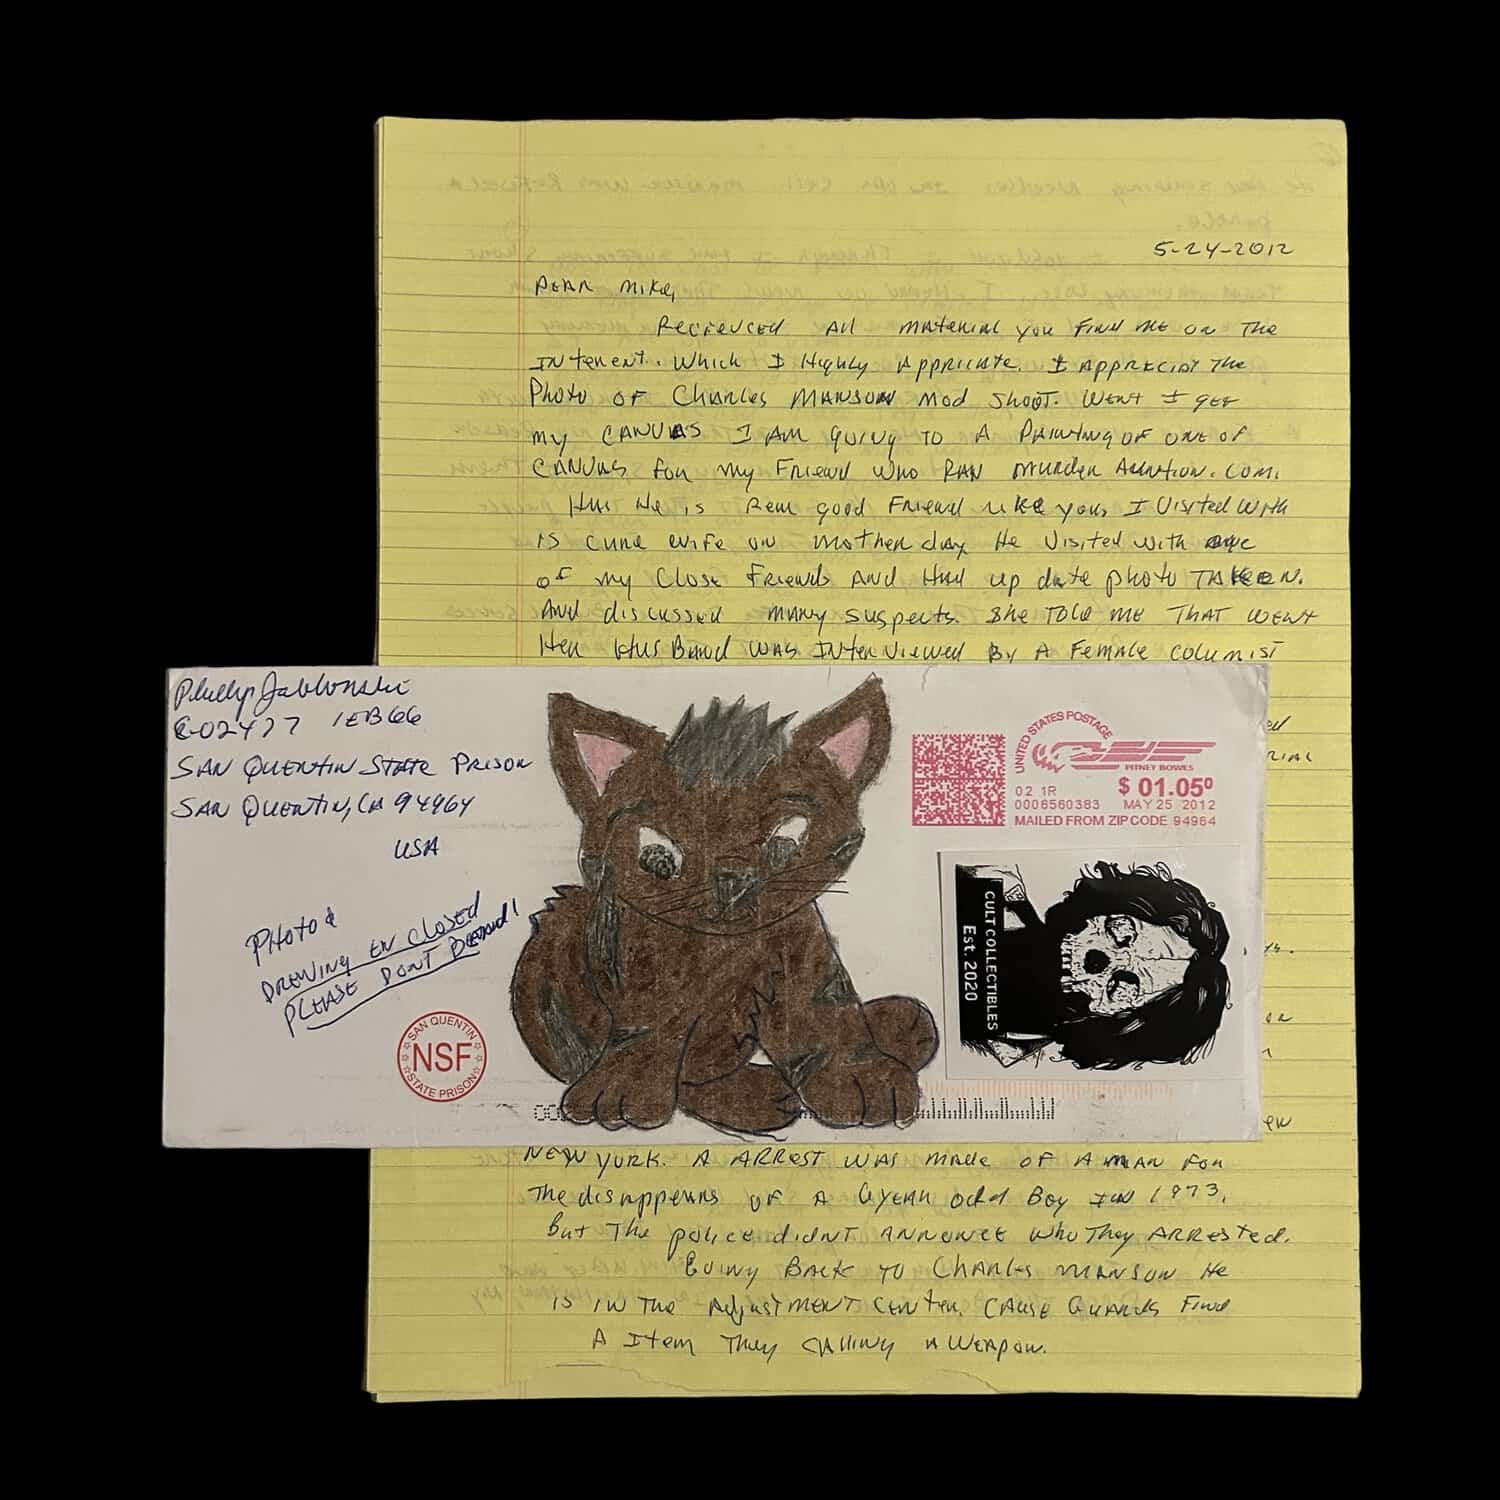 5-24-2012
Dear Mike,
Recieved All material you find me on the
Intenent. Which I Highly Appriciate. I Appreciat The
Photo of Charles Manson Mod Shoot. Went I get
my CANVAS I AM going to A PAinting of one of
CANVAS for my Friend who RAN murder Auction. com.
He is Real good Friend like you, I Visited with
is wife on mother day. He Visited with
of my Close Friends And Had up date photo TAKEN.
And discussed many suspects. She Told me THAT WENT
Her Husband was Interviewed By A Female Columist
Phillip Jablonski
C-02477 1EB66
San Quentin State Prison
San Quentin, CA 94964
USA
Photo &
Drewing Enclosed
Please Dont Bend!
SAN QUENTIN
NSF
STATE PRISON
UNITED STATES POSTAGE
PITNEY BOWES
02 1R
$ 01.05⁰
0006560383 MAY 25 2012
MAILED FROM ZIP CODE 94964
CULT COLLECTIBLES
Est. 2020
NEW YORK. A ARREST WAS made of A MAN For
The disappears of A 6 year odd Boy IN 1973.
But The police didnt Annonce who They ARRESTed.
Going BACK TO Charles Manson He
is in The AdjustMENT Center. Cause Guards Find
A Item They Calling A Weapon.